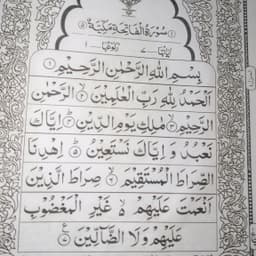 سُوۡرَةُ الۡفَاتِحَةِ مَكِّيَّةٌ
بِسۡمِ اللّٰهِ الرَّحۡمٰنِ الرَّحِيۡمِ ۝۱
اَلۡحَمۡدُ لِلّٰهِ رَبِّ الۡعٰلَمِيۡنَ ۝۲ الرَّحۡمٰنِ
الرَّحِيۡمِ ۝۳ مٰلِكِ يَوۡمِ الدِّيۡنِ ۝۴ اِيَّاكَ
نَعۡبُدُ وَ اِيَّاكَ نَسۡتَعِيۡنُ ۝۵ اِهۡدِنَا
الصِّرَاطَ الۡمُسۡتَقِيۡمَ ۝۶ صِرَاطَ الَّذِيۡنَ
اَنۡعَمۡتَ عَلَيۡهِمۡ ۙ غَيۡرِ الۡمَغۡضُوۡبِ
عَلَيۡهِمۡ وَلَا الضَّآلِّيۡنَ ۝۷